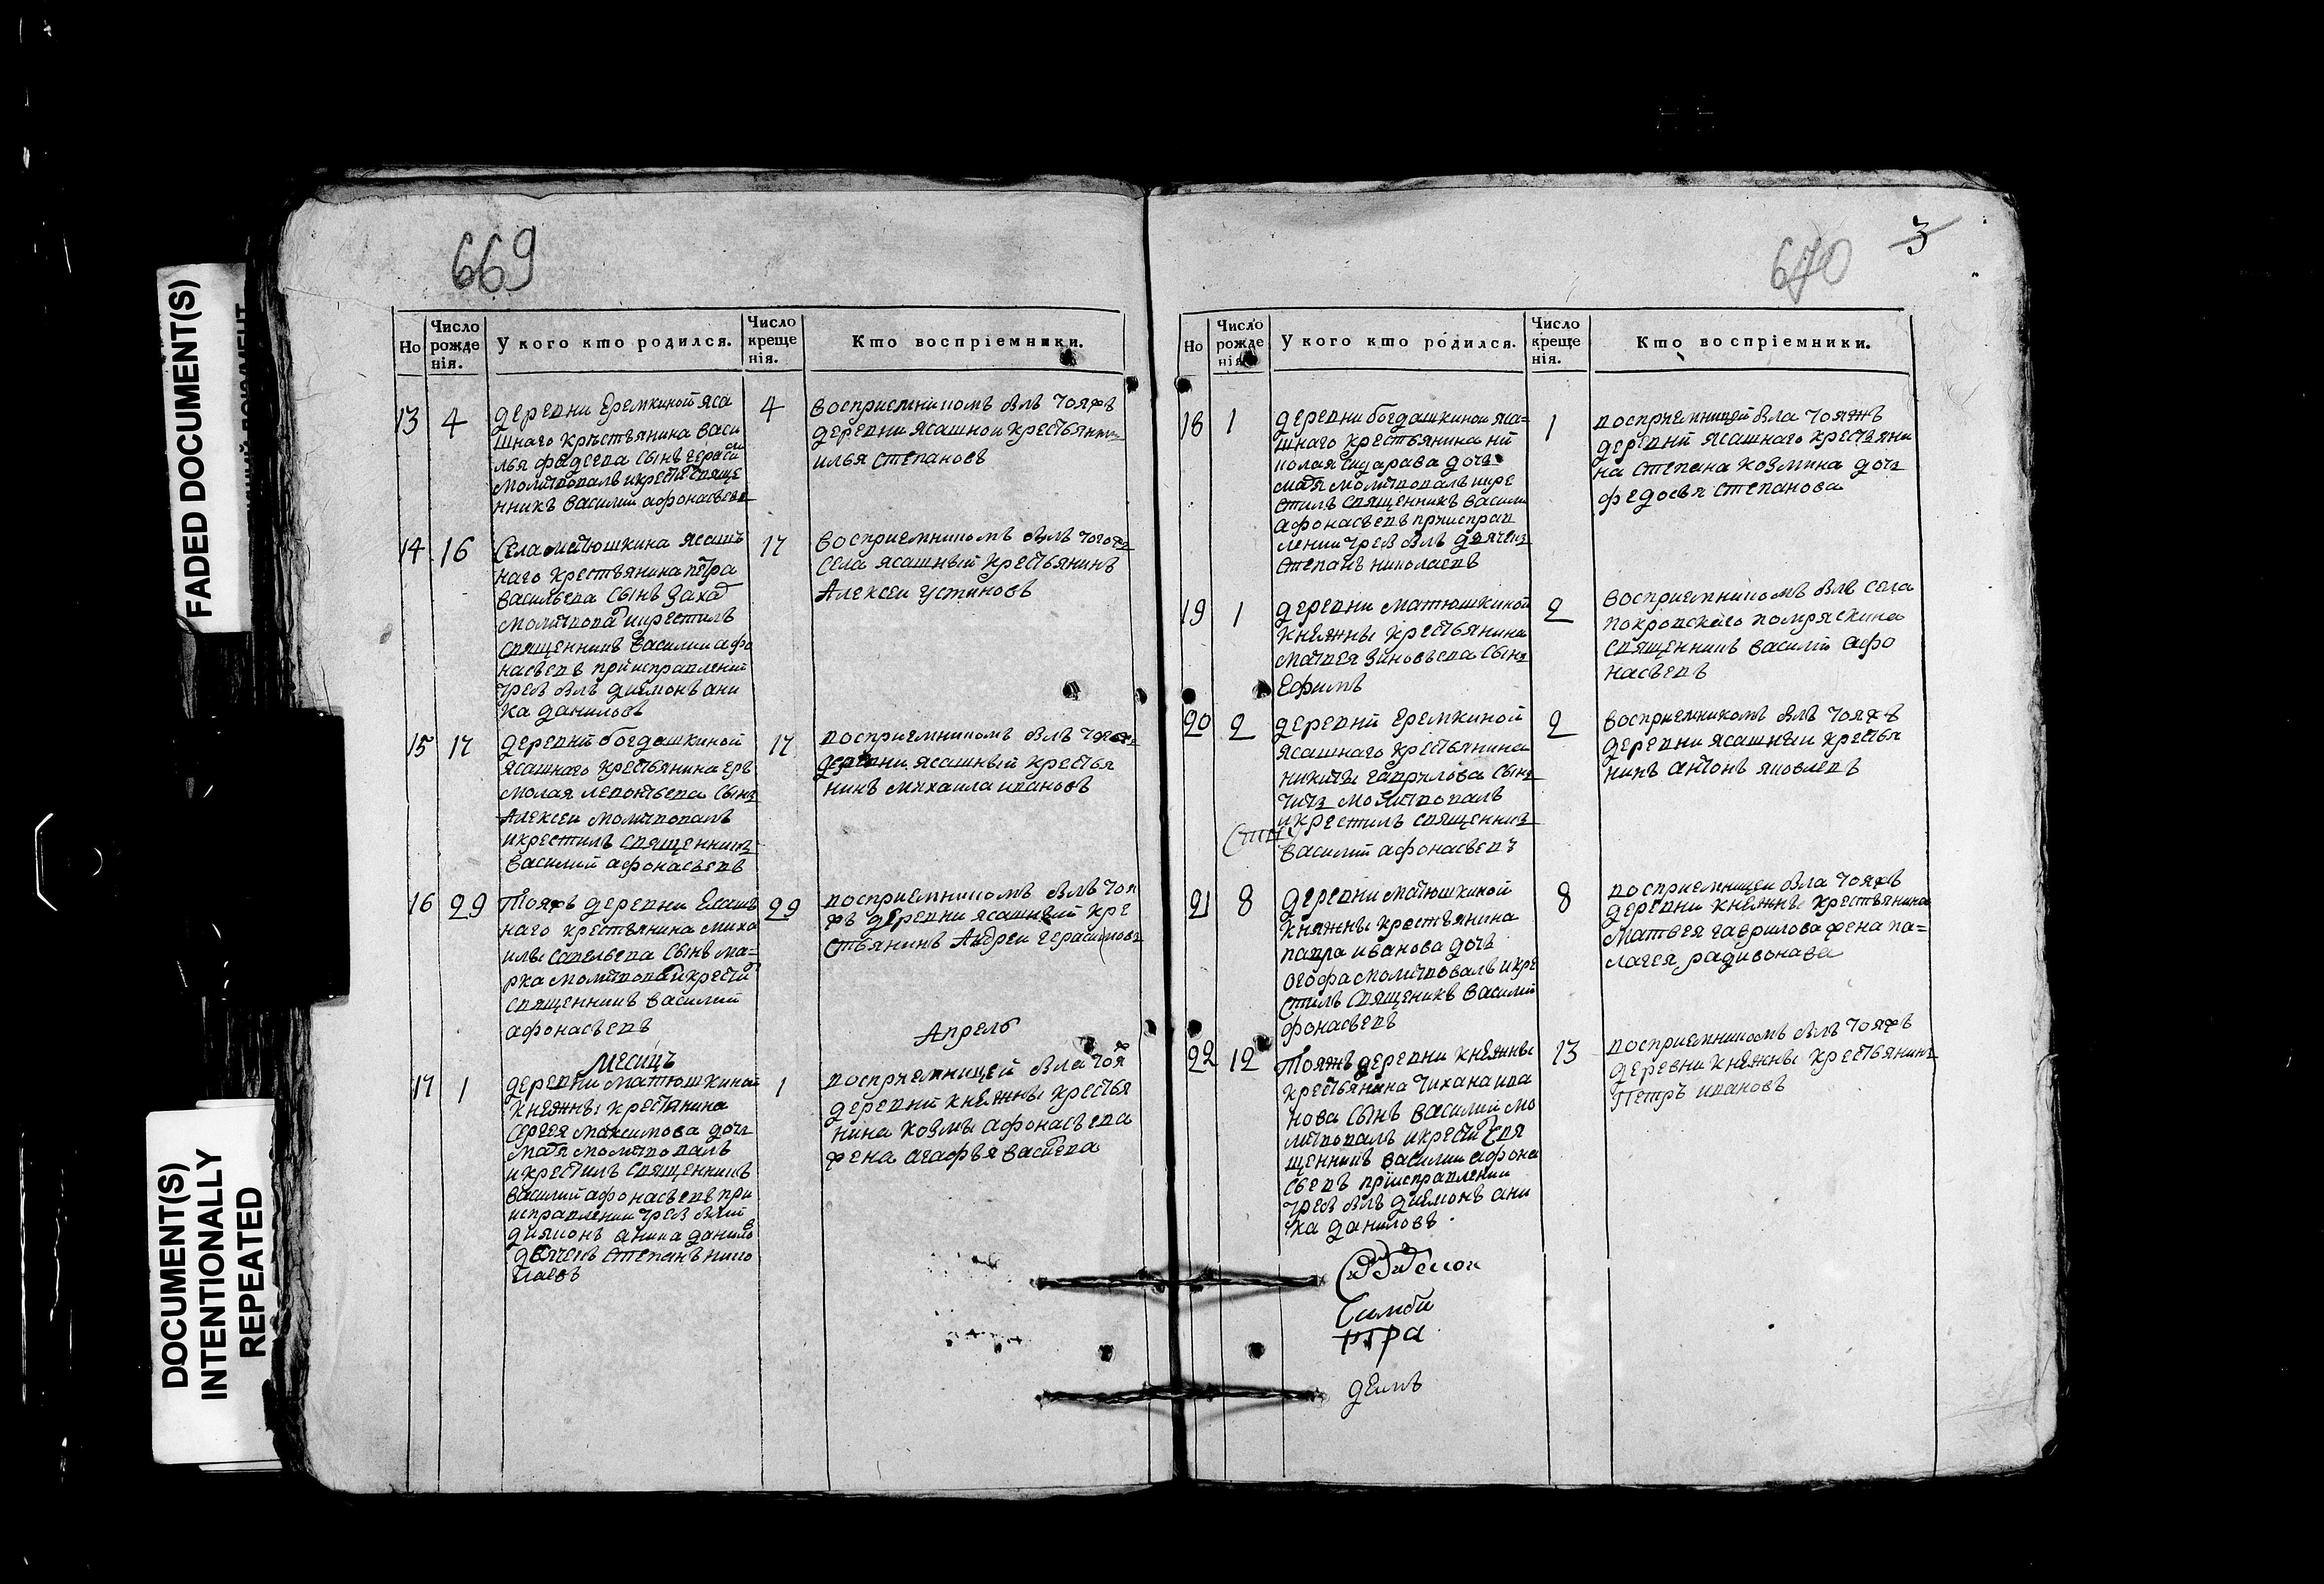 669
Но
Число рожденія.
У кого кто родился.
Число крещенія.
Кто воспріемники.
13
4
деревни Еремкиной яса
шнаго крестьянина васи
лья фадеева сынъ гераси
молитвовалъ и крести свяще
нникъ василии афонасьевъ
4
восприемникомъ былъ тояжъ
деревни ясашнои крестьянин
илья степановъ
14
16
села матюшкина ясаш
наго крестьянина петра
васильева сынъ захар
молитвова и крестилъ
священникъ василии афо
насьевъ при исправлении
чрез былъ диямонъ ани
ка даниловъ
17
восприемникомъ былъ тогож
села ясашный крестьянинъ
Алексеи устиновъ
15
17
деревни богдашкиной
ясашнаго крестьянина ер
молая леонтьева сынъ
Алексеи молитвовалъ
и крестилъ священникъ
василий афонасьевъ
17
восприемникомъ былъ
деревни ясашный крестья
нинъ михаила ивановъ
16
29
Тояжъ деревни Ясаш
наго крестьянина миха
илы савельева сынъ ма=
рка молитвова и крести
священникъ василий
афонасьевъ
29
восприемникомъ былъ тоя
жъ деревни ясашный кре
стьянинъ Андреи герасимовъ
месицъ
Апрель
17
1
деревни матюшкиной
княжны крестянина
сергея максимова дочь
матя молитвовалъ
и крестилъ священникъ
василий афонасьевъ при
исправлении чрез были
диямонъ аника данило
дьячекъ степанъ нико
лаевъ
1
восприемницей была тояж
деревни княжны крестья
нина козмы афонасьева
жена агафья
670
3
Но
Число рожденія.
У кого кто родился.
Число крещенія.
Кто воспріемники.
18
1
деревни богдашкинои яса=
шнаго крестьянина ни
колая сидарава дочь
матя молитвовалъ и кре
стилъ священникъ васили
афонасьевъ при исправ
лении чрез былъ дьячекъ
степанъ николаевъ
1
восприемницей была тояжъ
деревни ясашнаго крестьяни
на степана козмина дочь
федосья степанова
19
1
деревни матюшкиной
княжны крестьянина
матвея зиновьева сынъ
Ефимъ
2
восприемникомъ былъ села
покровскаго помряскина
священникъ василий афо
насьевъ
20
2
деревни Еремкиной
ясашнаго крестьянина
никиты гаврилова сынъ
титъ молитвовалъ
и крестилъ священникъ
василий афонасьевъ
2
восприемникомъ былъ тояжъ
деревни ясашныи крестья
нинъ антонъ яковлевъ
21
8
деревни матюшкиной
княжны крестьянина
павла иванова дочь
огофа молитвовалъ и кре
стилъ священикъ василий
фонасьевъ
8
восприемницеи была тояжъ
деревни княжны крестьянина
матвея гаврилова жена па=
лагея радивонава
22
12
Тояжъ деревни княжны
крестьянина тихана ива
нова сынъ василий мо
литвовалъ и крести свя
щенникъ василии афона
сьевъ при исправлении
чрез былъ диямонъ ани
ка даниловъ.
13
восприемникомъ былъ тояжъ
деревни княжны крестьянинъ
Петръ ивановъ
Симби
FADED DOCUMENT(S)
DOCUMENT(S)
INTENTIONALLY
REPEATED